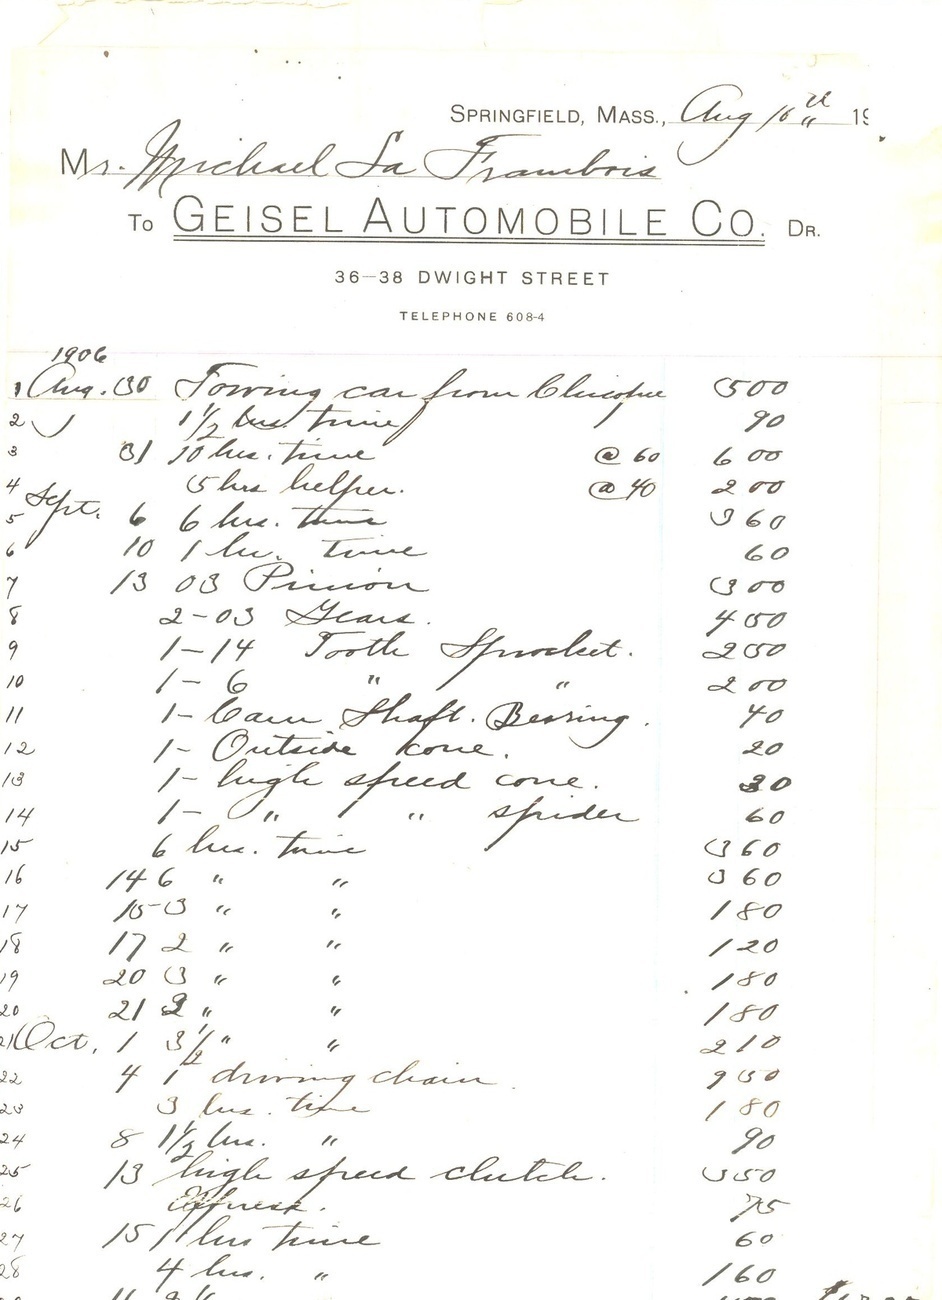 SPRINGFIELD, MASS., Aug 16th 19
Mr. Michael La Frambois
To GEISEL AUTOMOBILE CO. DR.
36-38 DWIGHT STREET
TELEPHONE 608-4
1906
1 Aug. 30 Towing car from Chicopee 500
2 1 1/2 hrs. time 90
3 31 10 hrs. time @ 60 600
4 5 hrs helper. @ 40 200
5 Sept. 6 6 hrs. time 360
6 10 1 hr. time 60
7 13 03 Pinion 300
8 2-03 Gears. 450
9 1-14 Tooth Sprocket. 250
10 1-6 " " 200
11 1- Cam Shaft. Bearing. 40
12 1- Outside cone. 20
13 1- high speed cone. 30
14 1- " " spider 60
15 6 hrs. time 360
16 14 6 " " 360
17 15 3 " " 180
18 17 2 " " 120
19 20 3 " " 180
20 21 3 " " 180
21 Oct. 1 3 1/2 " " 210
22 4 1 driving chain 950
23 3 hrs. time 180
24 8 1 1/2 hrs. " 90
25 13 high speed clutch. 350
26 Express. 75
27 15 1 hrs time 60
28 4 hrs. " 160